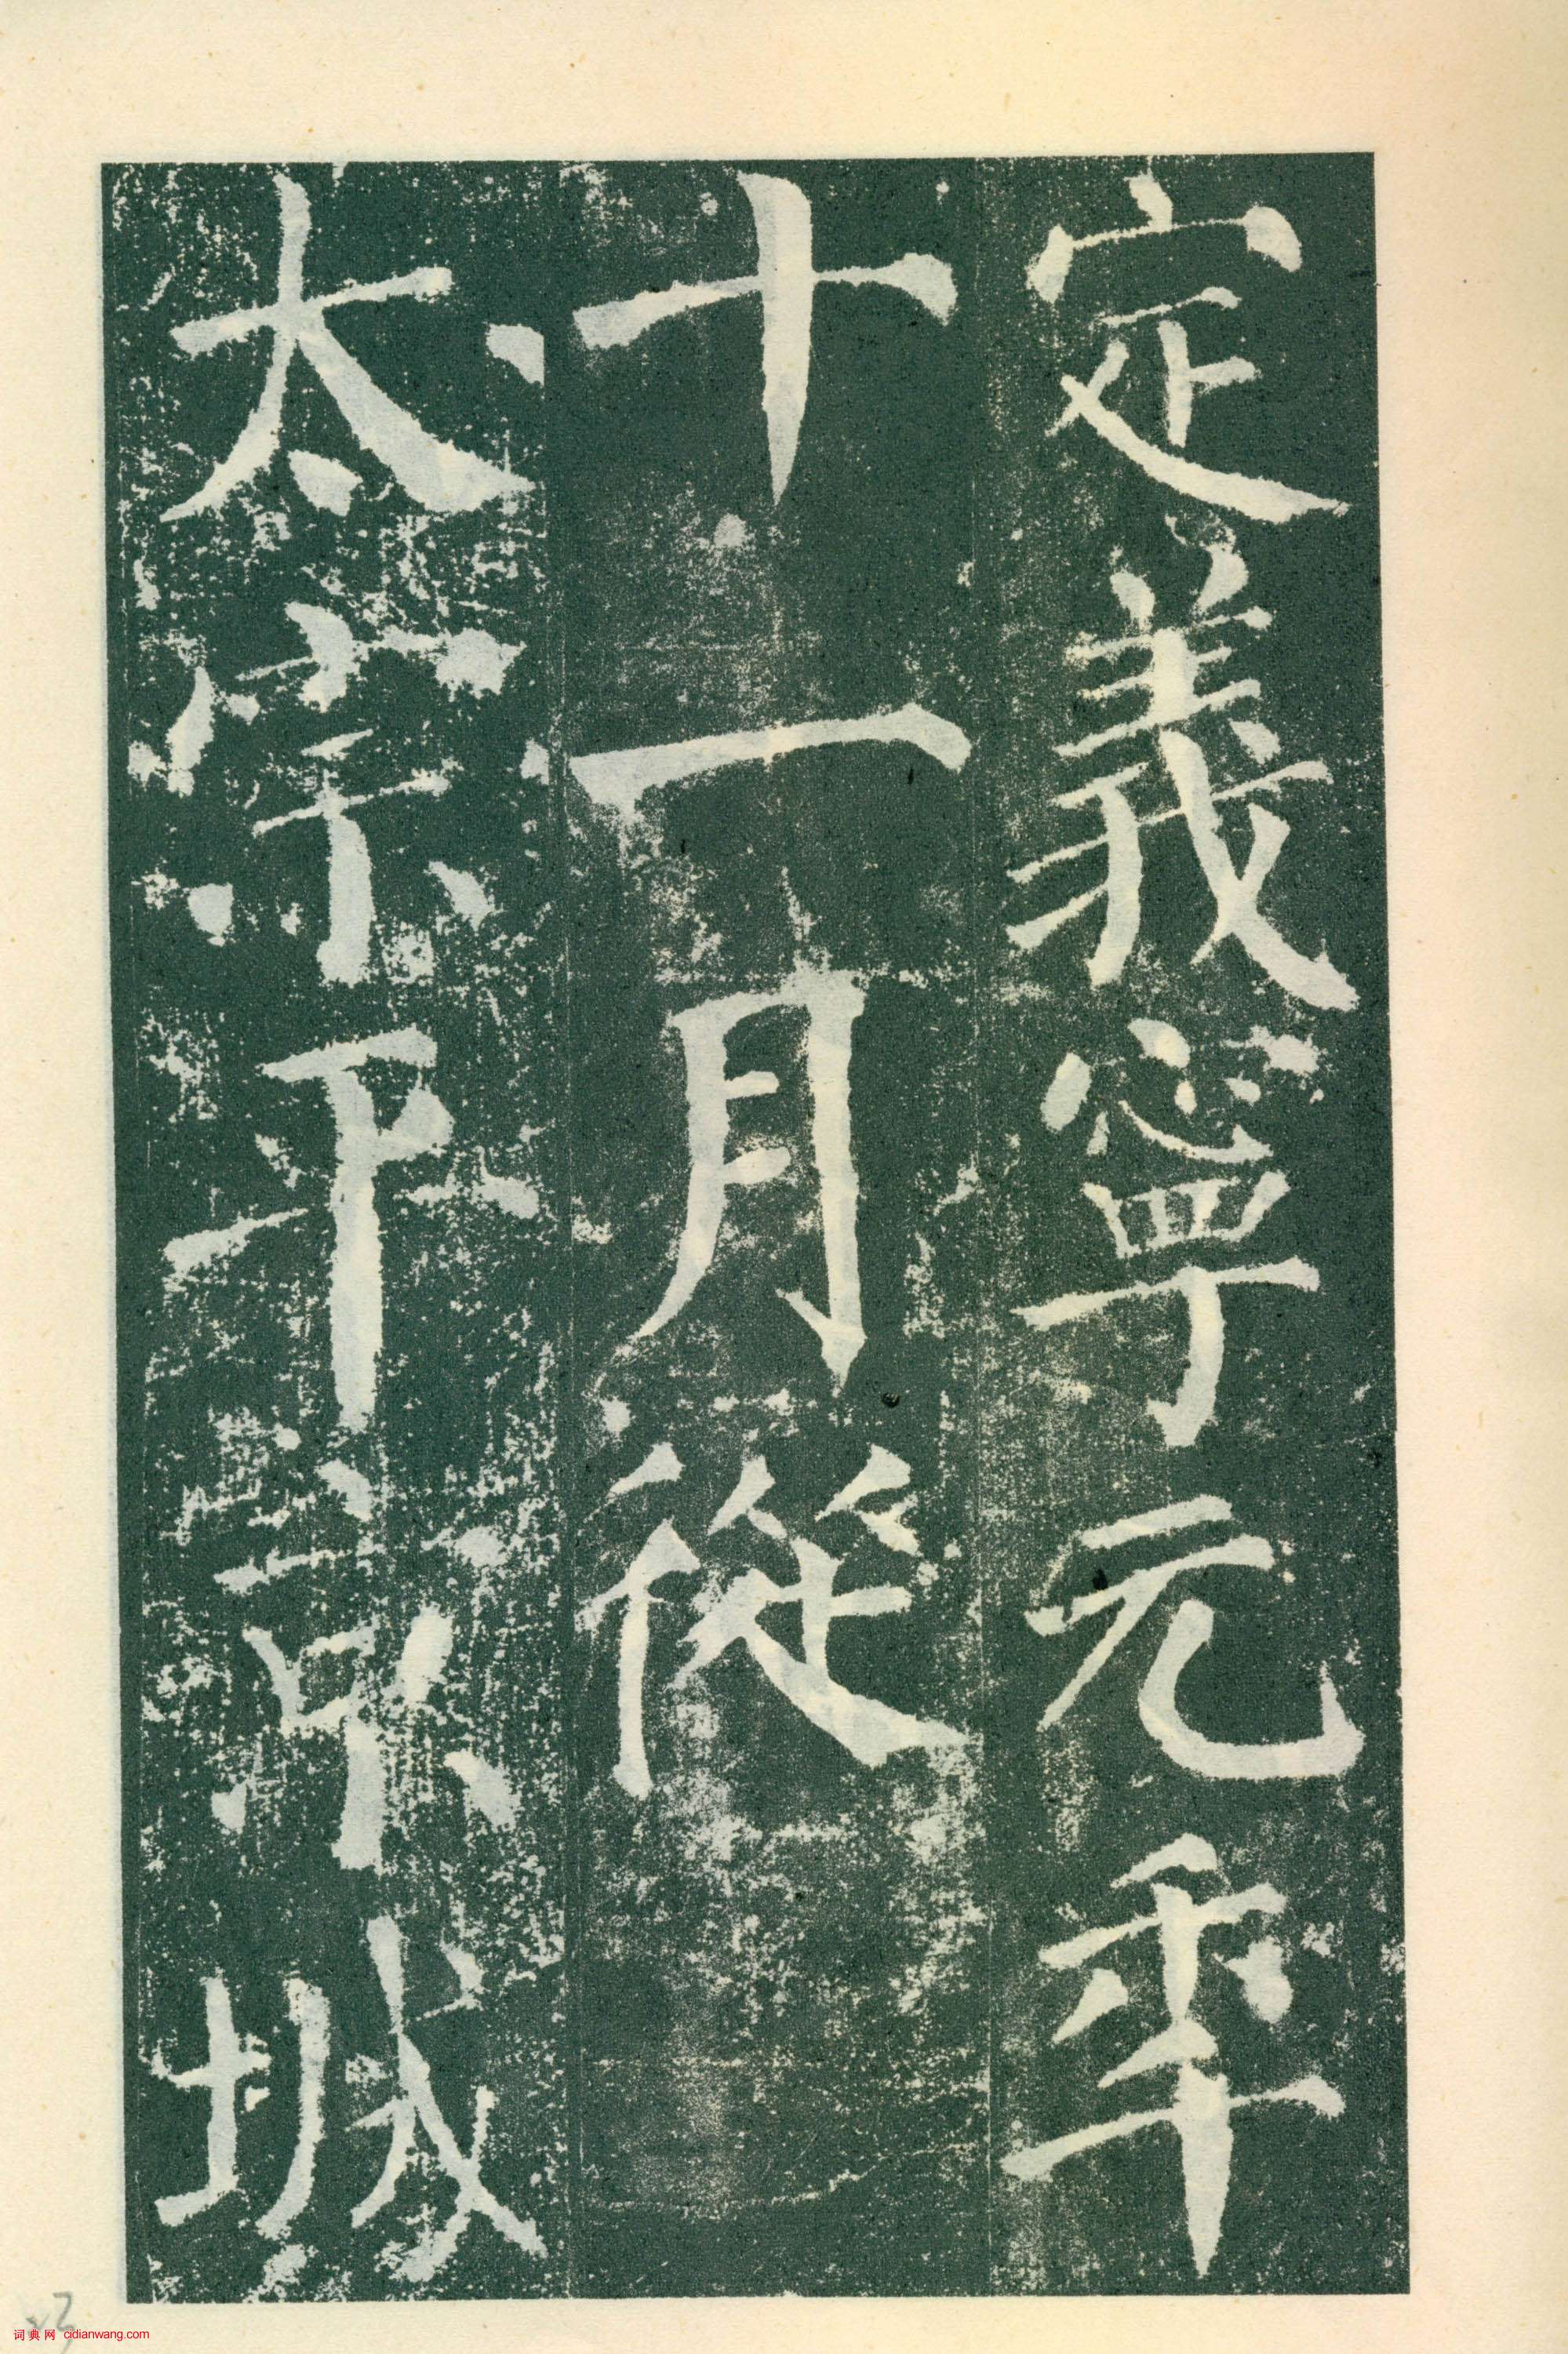 定義寧元年
十一月從
太宗平京城
词典网 cidianwang.com